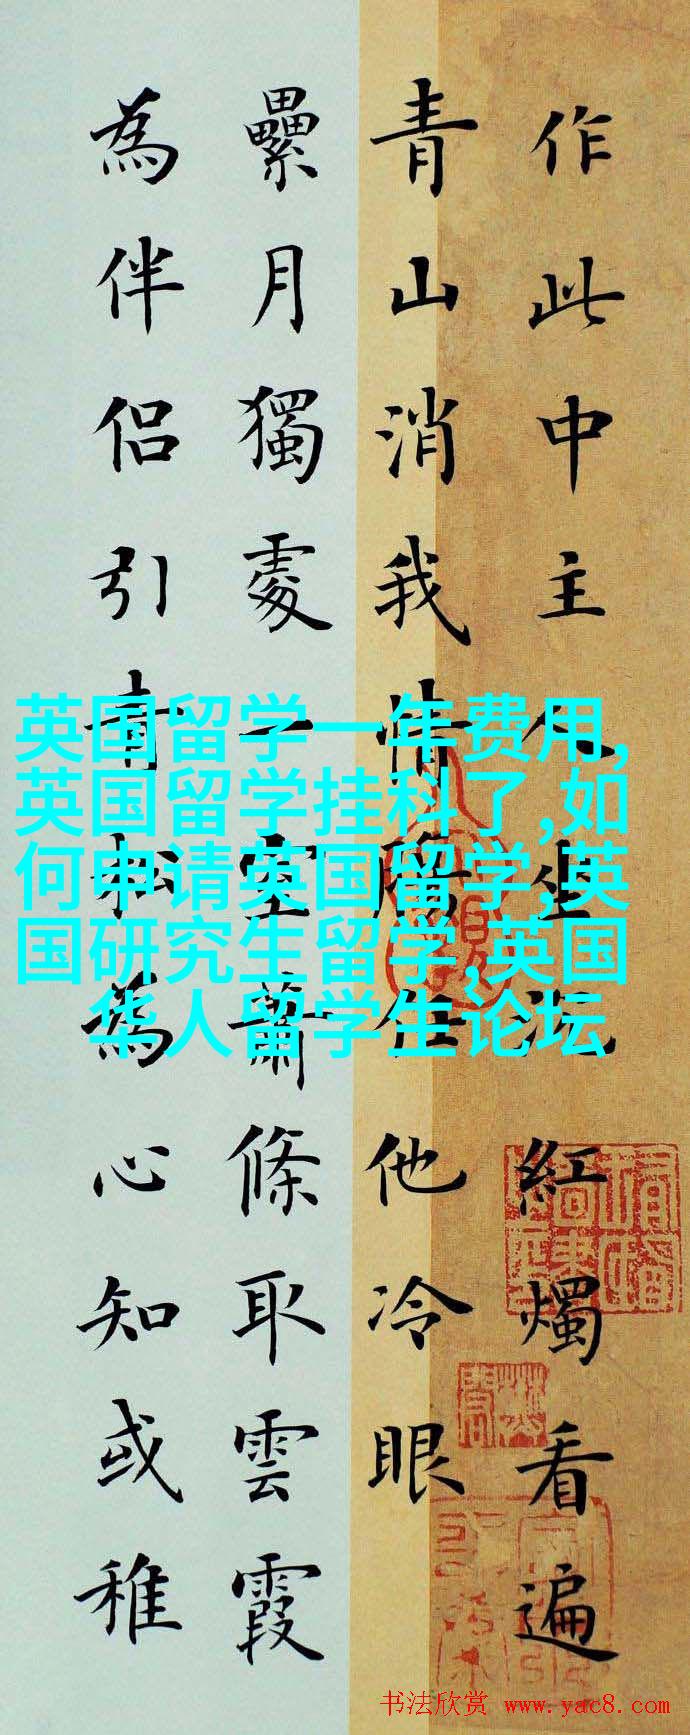 作此中主人坐沉紅燭看遍
青山消我情腸任他冷眼
纍月獨處一室蕭條取雲霞
為伴侶引青松為心知或稚
英国留学一年费用,
英国留学挂科了,如
何申请英国留学,英
国研究生留学,英国
华人留学生论坛
书法欣赏 www.yac8.com